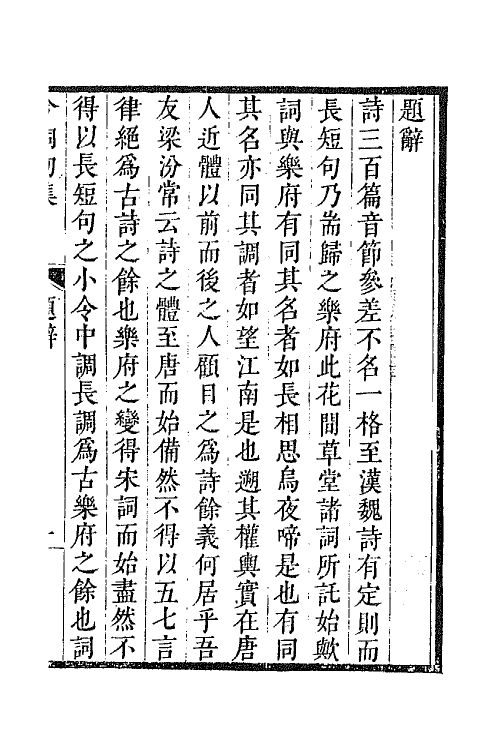 題辭
詩三百篇音節參差不名一格至漢魏詩有定則而
長短句乃耑歸之樂府此花間草堂諸詞所託始歟
詞與樂府有同其名者如長相思烏夜啼是也有同
其名亦同其調者如望江南是也遡其權輿實在唐
人近體以前而後之人顧目之為詩餘義何居乎吾
友梁汾常云詩之體至唐而始備然不得以五七言
律絕爲古詩之餘也樂府之變得宋詞而始盡然不
得以長短句之小令中調長調爲古樂府之餘也詞
今詞初集
題辭
一